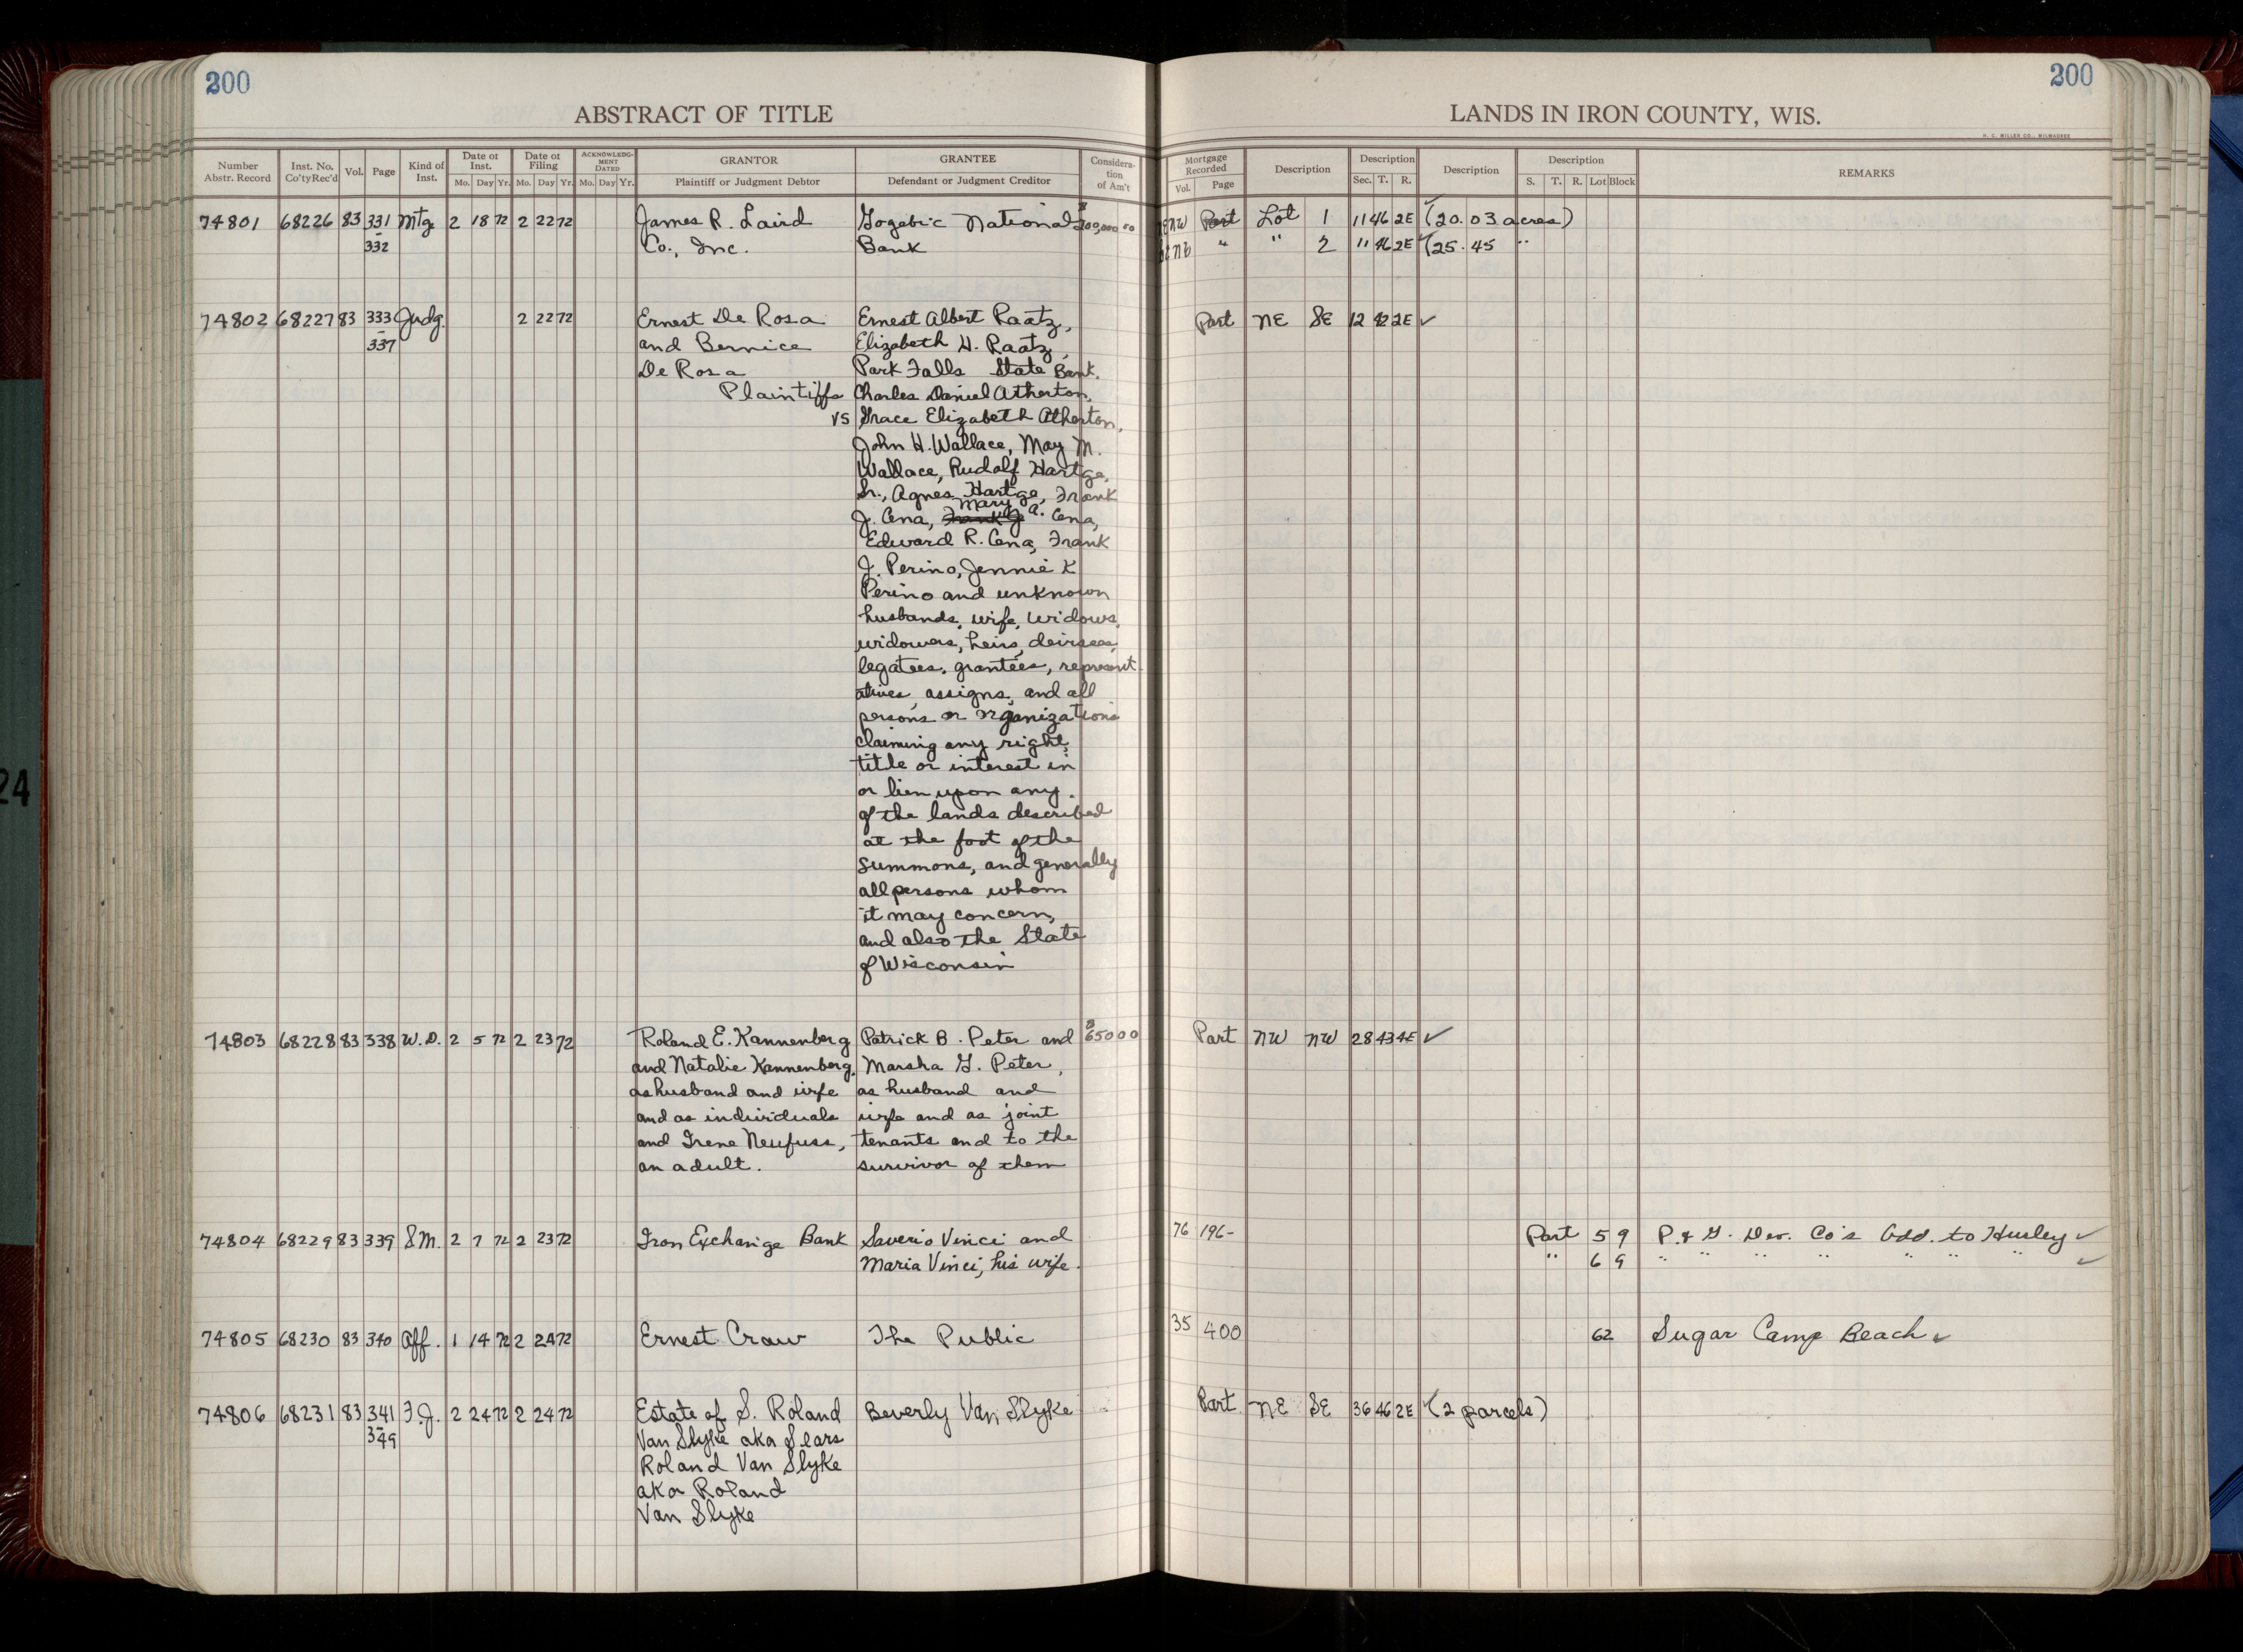 200
ABSTRACT OF TITLE
Number Abstr. Record
Inst. No. Co'ty Rec'd
Vol.
Page
Kind of Inst.
Date of Inst.
Mo. Day Yr.
Date of Filing
Mo. Day Yr.
ACKNOWLEDGMENT DATED
Mo. Day Yr.
GRANTOR
Plaintiff or Judgment Debtor
GRANTEE
Defendant or Judgment Creditor
Consideration of Am't
200
LANDS IN IRON COUNTY, WIS.
H. C. MILLER CO., MILWAUKEE
Mortgage Recorded
Vol. Page
Description
Description
Sec. T. R.
Description
Description
S. T. R. Lot Block
REMARKS
74801 68226 83 331 Mtg 2 18 72 2 22 72 James R. Laird Gogebic National Part Lot 1 11 46 2E (20.03 acres)
- 332 Co., Inc. Bank " " 2 11 46 2E (25.45 "
74802 68227 83 333 Judg. 2 22 72 Ernest De Rosa Ernest Albert Raatz, Part NE SE 12 42 2E ✓
- 337 and Bernice Elizabeth H. Raatz,
De Rosa Park Falls State Bank.
Plaintiffs Charles Daniel Atherton,
vs Grace Elizabeth Atherton,
John H. Wallace, May M.
Wallace, Rudolf Hartge,
Sr., Agnes Hartge, Frank
Mary
J. Cena, Frank J. A. Cena,
Edward R. Cena, Frank
J. Perino, Jennie K
Perino and unknown
husbands, wife, widows,
widowers, heirs, deivsees,
legatees, grantees, represent-
atives, assigns, and all
persons or organizations
claiming any right,
title or interest in
or lien upon any
of the lands described
at the foot of the
summons, and generally
all persons whom
it may concern,
and also the State
of Wisconsin
74803 68228 83 338 W.D. 2 5 72 2 23 72 Roland E. Kannenberg Patrick B. Peter and $65000 Part NW NW 28 43 4E ✓
and Natalie Kannenberg, Marsha G. Peter,
as husband and wife as husband and
and as individuals wife and as joint
and Irene Neufuss, tenants and to the
an adult. survivor of them
74804 68229 83 339 S.M. 2 7 72 2 23 72 Iron Exchange Bank Saverio Vinci and 76 196- Part 5 9 P. & G. Dev. Co's Add. to Hurley ✓
Maria Vinci, his wife. " 6 9 " " " " " " " ✓
74805 68230 83 340 Aff. 1 14 72 2 24 72 Ernest Craw The Public 35 400 62 Sugar Camp Beach ✓
74806 68231 83 341 F.J. 2 24 72 2 24 72 Estate of S. Roland Beverly Van Slyke Part NE SE 36 46 2E (2 parcels)
- 349 Van Slyke aka Sears
Roland Van Slyke
aka Roland
Van Slyke
24